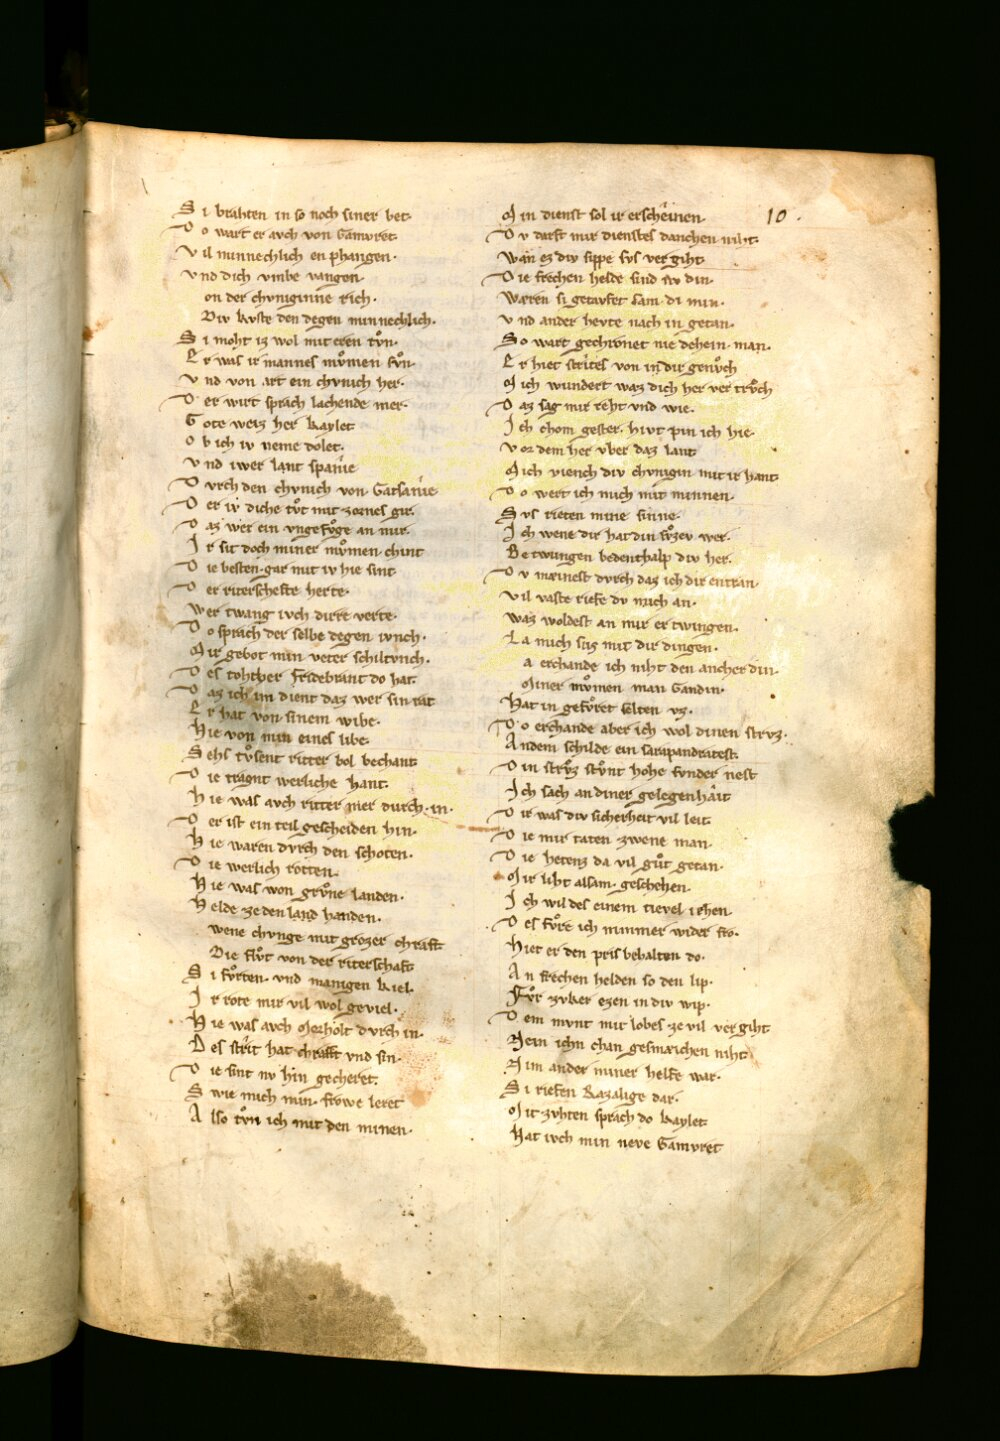 S i brahten in so noch siner bet·
D o wart er avch von Gamvret·
V il minnechlich en phangen·
V nd dich vmbe vangen·
on der chvniginne rich·
Div kvste den degen minnechlich·
S i moht iz wol mit eren tvͦn·
E r was ir mannes mvͦmen svͦn·
V nd von art ein chvnich her·
D er wirt sprach lachende mer·
G ote weiz her kaylet
O b ich iv neme dolet·
V nd iwer lant spanîe
D vrch den chvnich von Gatsanîe
D er iv diche tvͦt mit zornes gir·
D az wer ein vngefvͦge an mir·
I r sit doch miner mvͦmen chint
D ie besten gar mit iv hie sint·
D er riterschefte herte·
Wer twang ivch dirre verte·
D o sprach der selbe degen ivnch·
M ir gebot min veter schiltvnch·
D es tohtber fridebrant do hat·
D az ich im dient daz wer sin rat
E r hat von sinem wibe·
H ie von min eines libe·
S ehs tvͦsent ritter bol bechant
D ie tragnt werliche hant·
H ie was avch ritter mer durch in·
D er ist ein teil gescheiden hin·
H ie waren dvrch den schoten·
D ie werlich rotten·
H ie was von grvͦne landen·
H elde ze den land handen·
wene chvnge mit grozer chraft
Die flvͦt von der riterschaft
S i fvͦrten· vnd manigen kiel·
I r rote mir vil wol geviel·
H ie was avch Morholt dvrch in·
D es strit hat chrafft vnd sin·
D ie sint nv hin gecheret·
S wie mich min· frowe leret
A lso tvͦn ich mit den minen·
M in dienst sol ir erscheinen·
10 ·
D v darft mir dienstes danchen niht·
Wan ez div sippe svs vergiht
D ie frechen helde sind nv din·
Wæren si getavfet sam di min·
V nd ander hevte nach in getan·
S o wart gechronet nie dehein· man·
E r hiet strites von in dir genvͦch
M ich wundert waz dich her ver trvͦch
D az sag mir reht vnd wie·
I ch chom gester· hivt pin ich hie·
V or dem her vber daz lant
M ich viench div chvnigin mit ir hant
D o wert ich mich mit minnen·
S vs rieten mine sinne·
I ch wene dir hat din svͦzev wer·
B e twungen bedenthalp div her·
D v mæinest dvrch daz ich dir entran·
V il vaste riefe dv mich an·
Waz woldest an mir er twingen·
L a mich svs mit dir dingen·
a erchande ich niht den ancher din·
Miner mvͦmen man Gandin·
Hat in gefvͦret selten vz·
D o erchande aber ich wol dinen strvz·
A ndem schilde ein sarapandratest·
D in strvͦz stvͦnt hohe svnder nest
I ch sach an diner gelegenhâit
D ir was div sicherheit vil leit·
D ie mir taten zwene man·
D ie hetenz da vil gvͦt getan·
M ir liht allsam· geschehen·
I ch wil des einem tievel iehen·
D es fvͦre ich nimmer wider fro·
Hiet er den pris behalten do·
A n frechen helden so den lip·
Fvͦr zvker ezen in div wip·
D em mvnt mir lobes ze vil vergiht
Nein ichn chan gesmæichen niht
N im ander miner helfe war·
S i riefen kazalige dar·
M it zvhten sprach do kaylet
Hat ivch min neve Gamvret